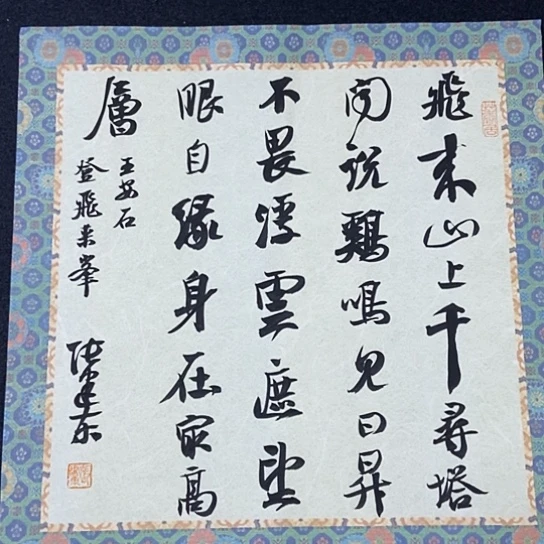 飛来山上千尋塔
聞說鷄鳴見日昇
不畏浮雲遮望
眼自緣身在最高
層
王安石
登飛来峯